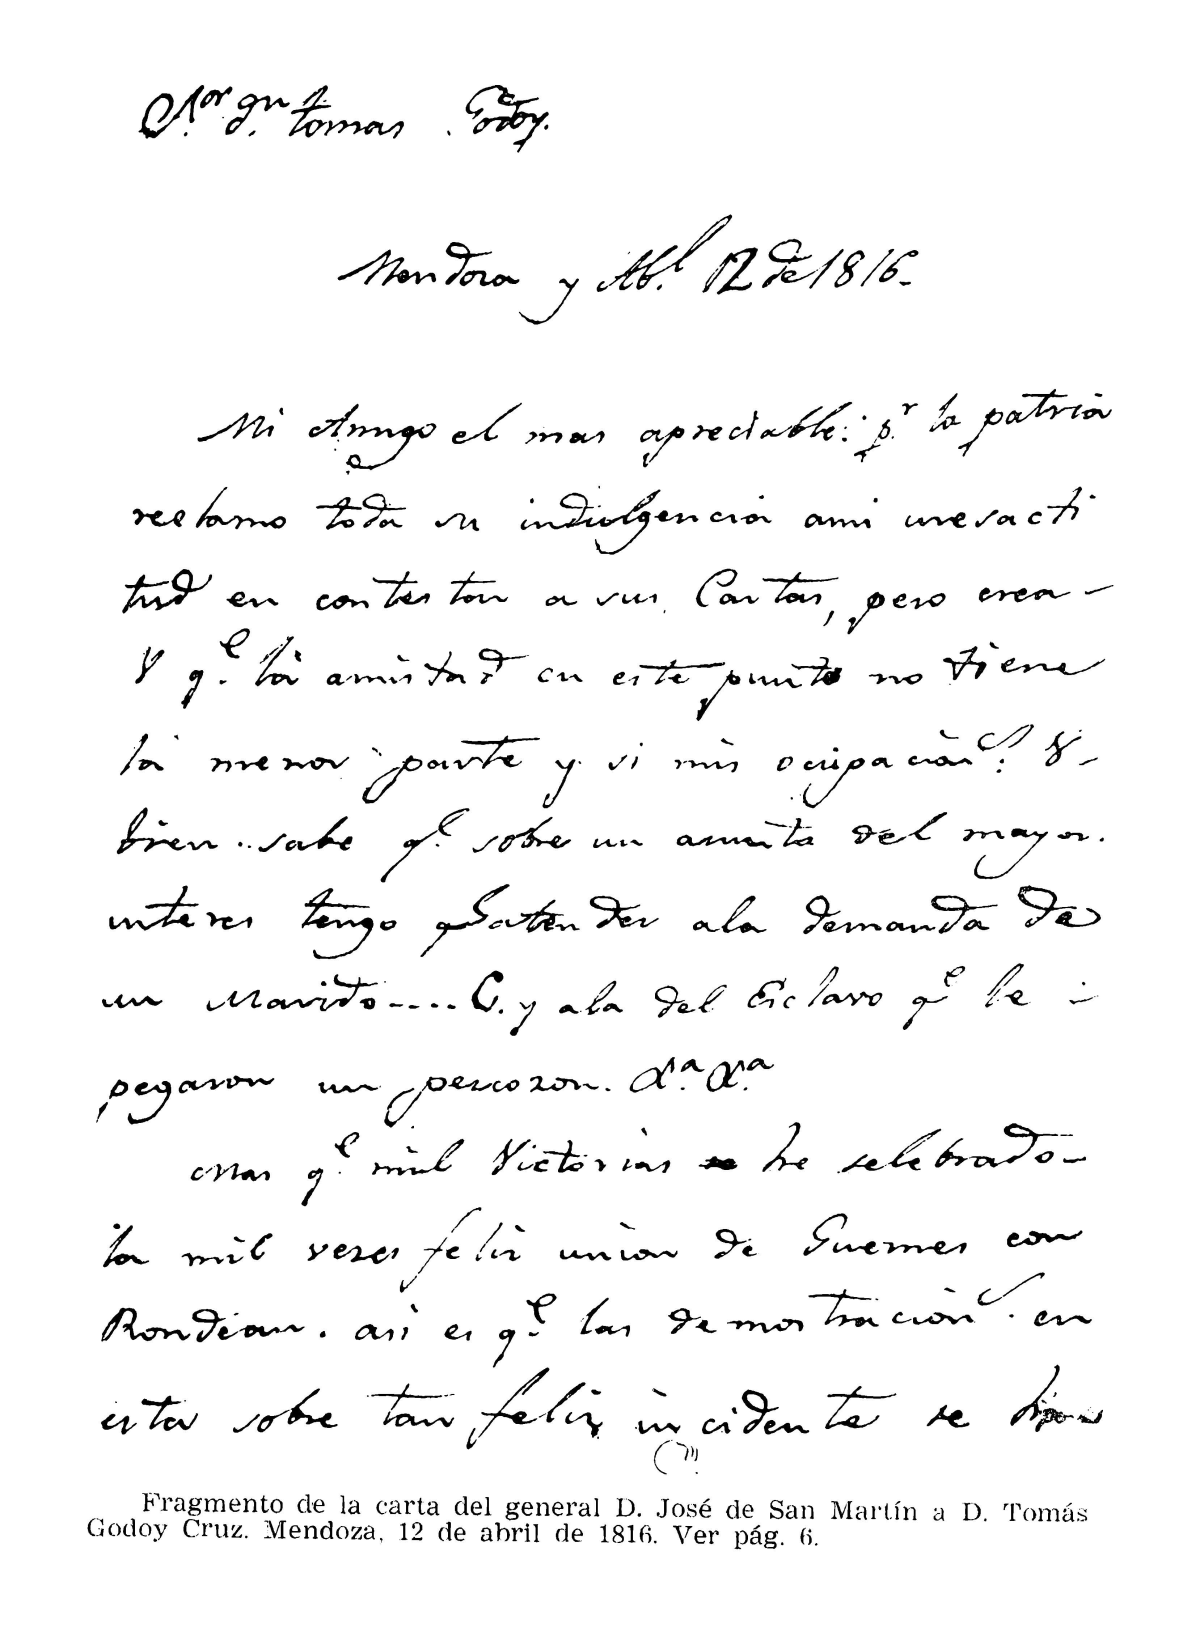 S.or d.n tomas Godoy.
Mendoza y Ab.l 12 de 1816.
Mi Amigo el mas apreciable: p.r la patria
reclamo toda su indulgencia ami inesacti
tud en contestar a sus Cartas, pero crea
V q.e la amistad en este punto no tiene
la menor parte y si mis ocupacion.s V
bien sabe q.e sobre un asunto del mayor
interes tengo q.e atender ala demanda de
un Marido.... C. y ala del Esclavo q.e le
pegaron un pescozon. &.a &.a
Mas q.e mil Victorias he selebrado
la mil veses feliz union de Guemes con
Rondeau. asi es q.e las demostracion.s en
esta sobre tan feliz incidente se
Fragmento de la carta del general D. José de San Martín a D. Tomás
Godoy Cruz. Mendoza, 12 de abril de 1816. Ver pág. 6.